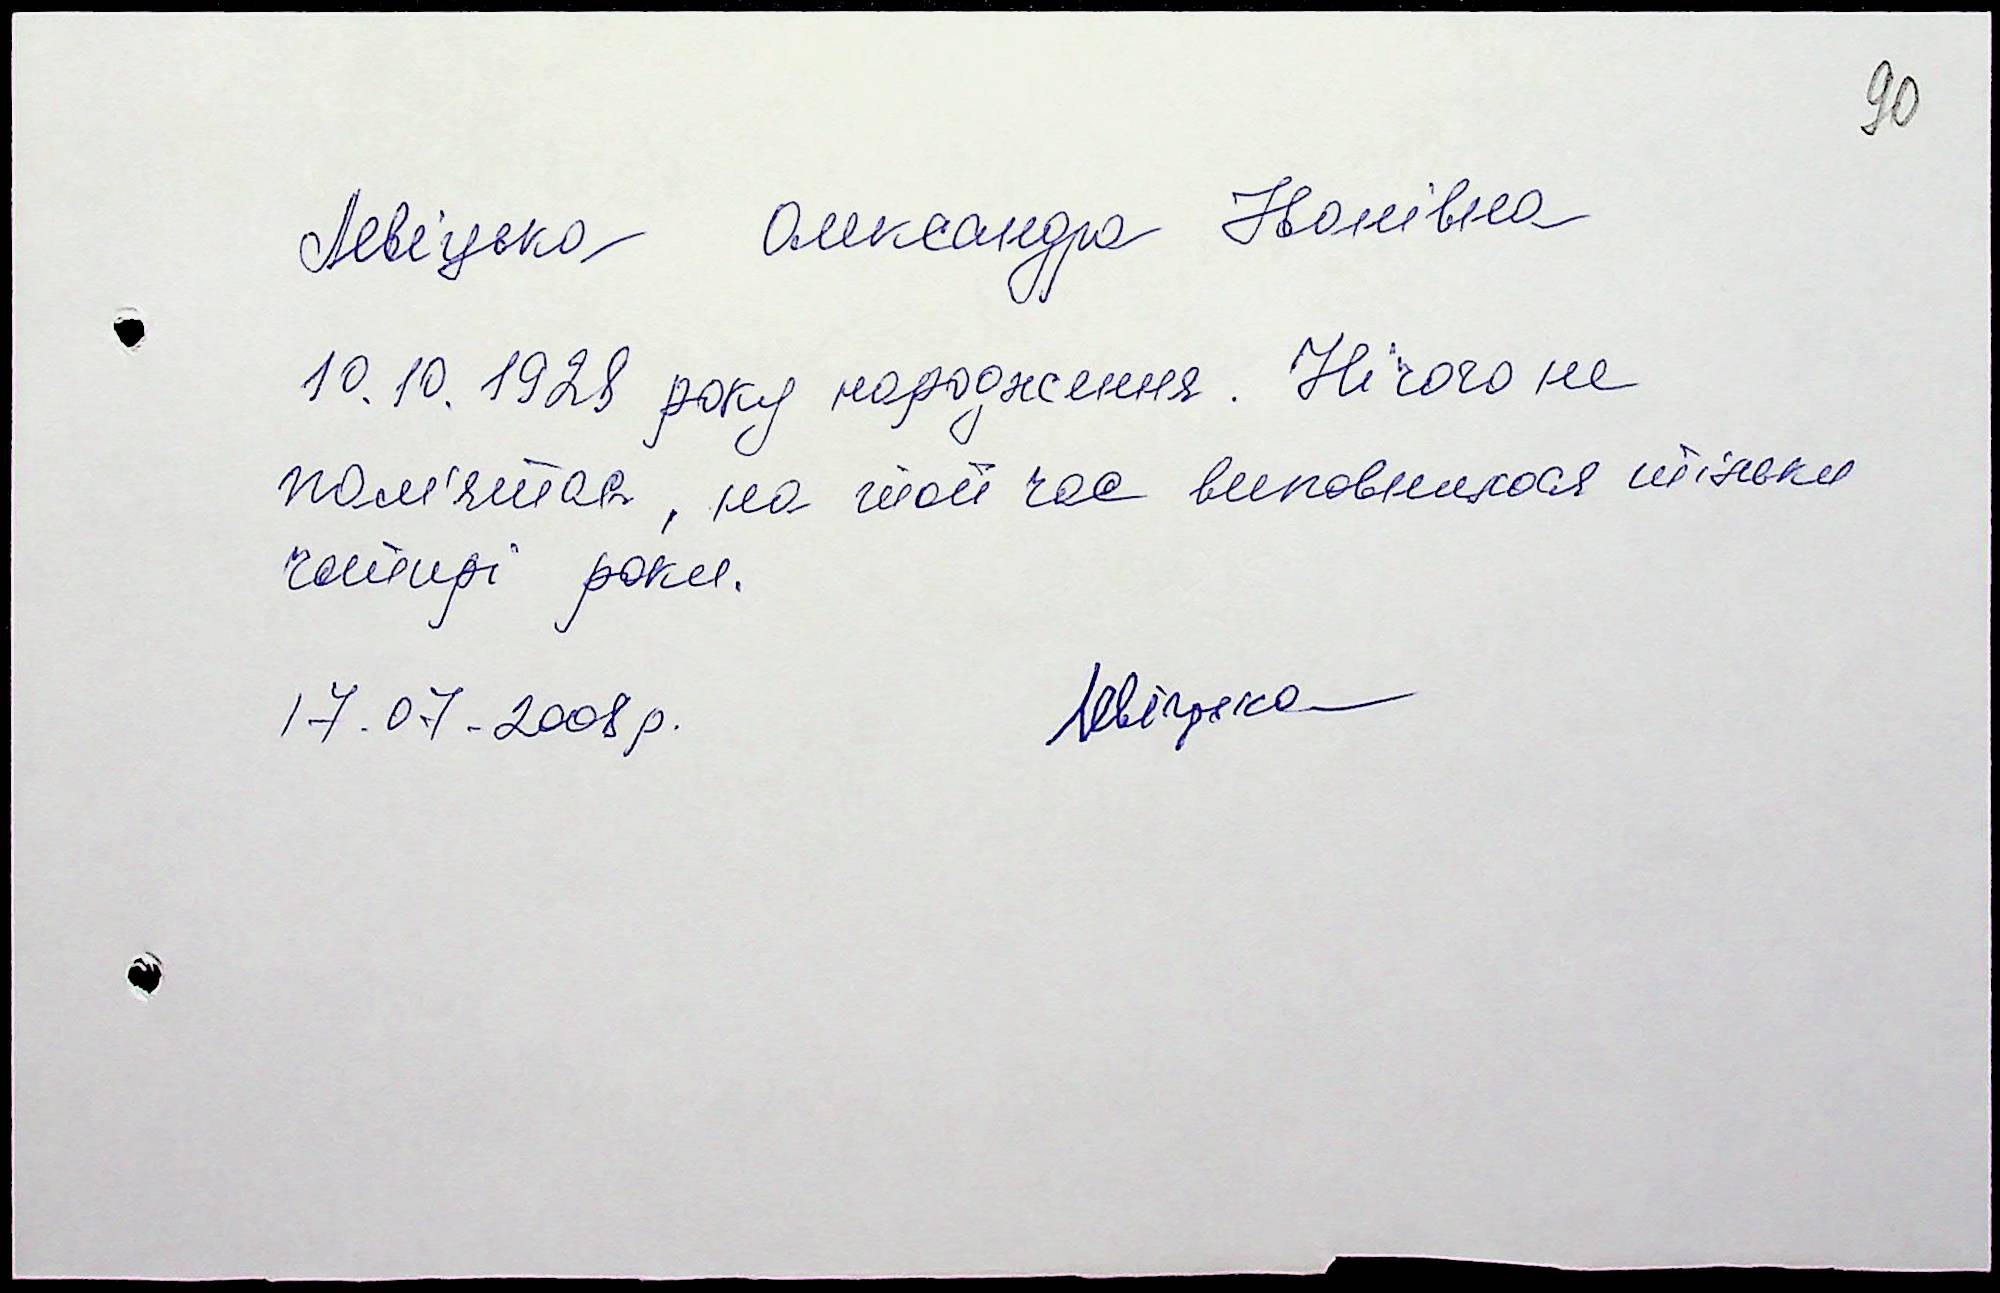 90
Левіцька Олександра Іванівна
10.10.1928 року народження. Нічого не
пам'ятає, на той час виповнилося тільки
чотирі роки.
17.07-2008р. Левіцька